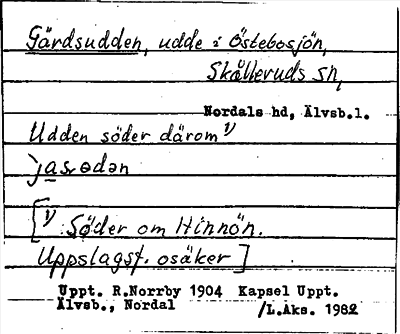 Gärdsudden, udde i Östebosjön,
Skålleruds sn,
Nordals hd, Älvsb.l.
Udden söder därom 1)
jasrødən
[1) Söder om Hinnön.
Uppslagsf. osäker]
Uppt. R.Norrby 1904 Kapsel Uppt.
Älvsb., Nordal /L.Aks. 1982